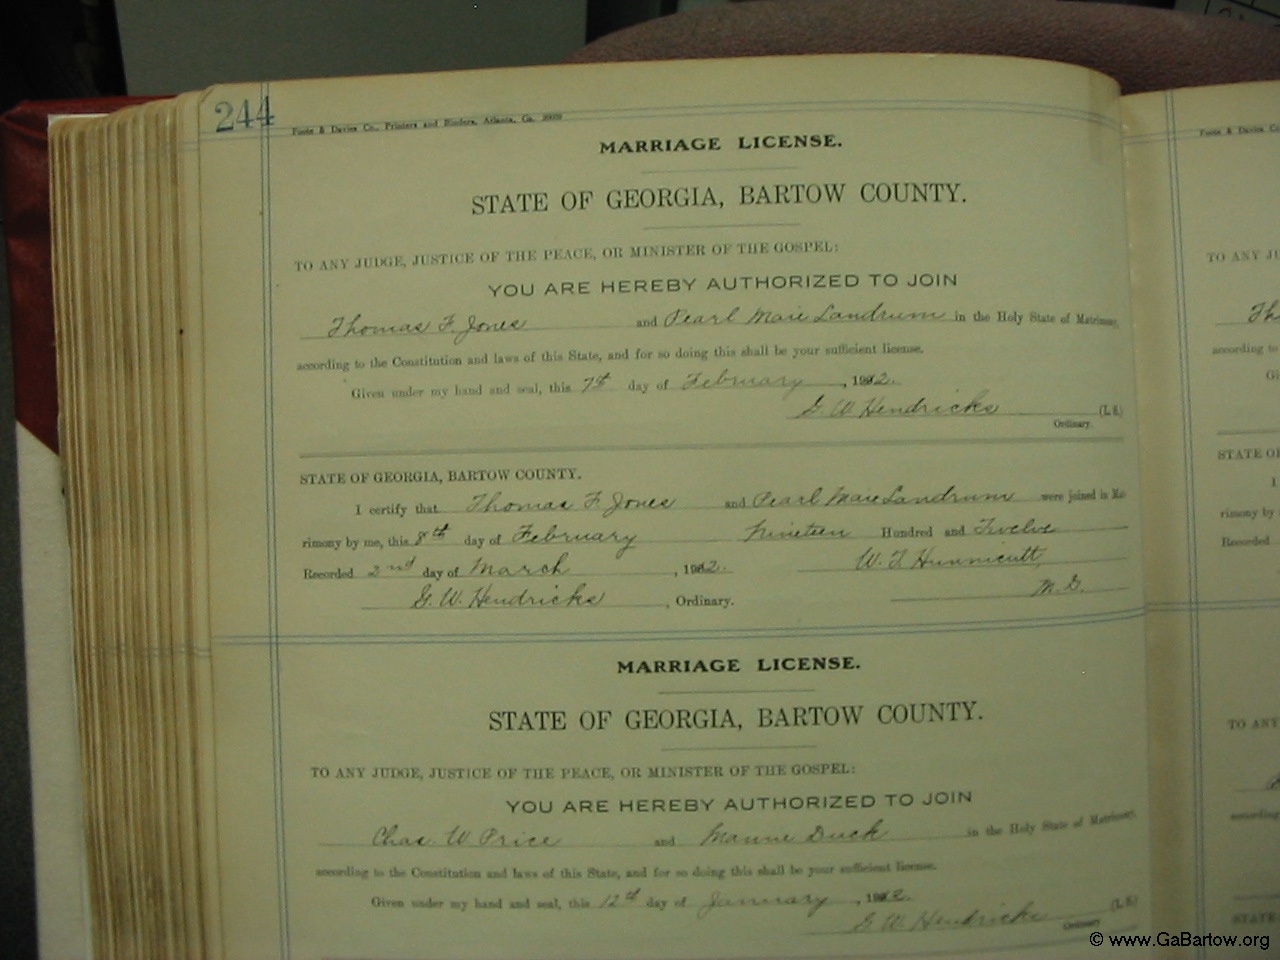 244
Foote & Davies Co., Printers and Binders, Atlanta, Ga.
MARRIAGE LICENSE.
STATE OF GEORGIA, BARTOW COUNTY.
TO ANY JUDGE, JUSTICE OF THE PEACE, OR MINISTER OF THE GOSPEL:
YOU ARE HEREBY AUTHORIZED TO JOIN
Thomas F. Jones and Pearl Maie Landrum in the Holy State of Matrimony,
according to the Constitution and laws of this State, and for so doing this shall be your sufficient license.
Given under my hand and seal, this 7th day of February, 1912.
G. W. Hendricks (L. S.)
Ordinary.
STATE OF GEORGIA, BARTOW COUNTY.
I certify that Thomas F. Jones and Pearl Maie Landrum were joined in Mat-
rimony by me, this 8th day of February Nineteen Hundred and Twelve
Recorded 2nd day of March, 1912. W. T. Hunnicutt,
G. W. Hendricks, Ordinary. M. G.
MARRIAGE LICENSE.
STATE OF GEORGIA, BARTOW COUNTY.
TO ANY JUDGE, JUSTICE OF THE PEACE, OR MINISTER OF THE GOSPEL:
YOU ARE HEREBY AUTHORIZED TO JOIN
Chas. W. Price and Duck in the Holy State of Matrimony,
according to the Constitution and laws of this State, and for so doing this shall be your sufficient license.
Given under my hand and seal, this 12th day of January, 1912.
G. W. Hendricks (L. S.)
Ordinary
Foote & Davies Co
TO ANY JU
Th
according to
Gi
STATE OF
I
rimony by
Recorded
TO ANY
according
STATE
© www.GaBartow.org